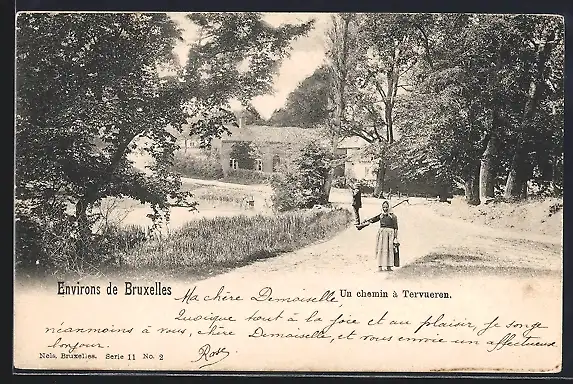 Environs de Bruxelles
Un chemin à Tervueren.
Ma chère Demoiselle,
Quoique tout à la joie et au plaisir, je songe
néanmoins à vous, chère Demoiselle, et vous envoie un affectueux
bonjour.
Rose
Nels, Bruxelles. Serie 11 No. 2